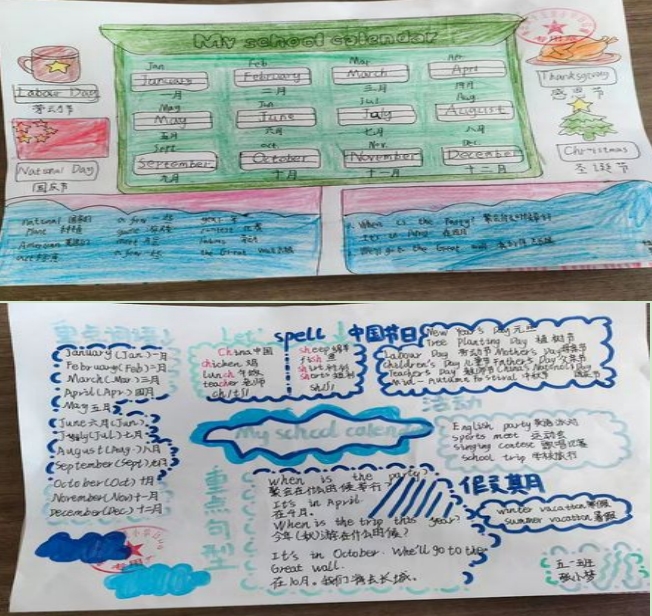 My school calendar
Jan Feb Mar Apr
January February March April
一月 二月 三月 四月
May Jun Jul Aug
May June July August
五月 六月 七月 八月
Sept Oct Nov Dec
September October November December
九月 十月 十一月 十二月
Labour Day
劳动节
National Day
国庆节
Thanksgiving
感恩节
Christmas
圣诞节
national
plant
American
a few
guess
meet
contest
the Great Wall
When is the party?
It's in April
the Great wall
重点词语
January(Jan)一月
February(Feb)二月
March(Mar)三月
April(Apr)四月
May五月
June六月(Jun)
July(Jul)七月
August(Aug)八月
September(Sept)九月
October(Oct)十月
November(Nov)十一月
December(Dec)十二月
Let's spell
China中国
chicken 鸡
lunch 午饭
teacher 老师
ch/tʃ/
sheep 绵羊
fish 鱼
shirt
shorts 短裤
sh/ʃ/
中国节日
New Year's Day 元旦
Tree Planting Day 植树节
Labour Day 劳动节 Mother's Day 母亲节
Children's Day 儿童节 Father's Day 父亲节
Teachers' Day 教师节 China's National Day
Mid-Autumn Festival 中秋节 国庆节
My school calendar
活动
English party 英语派对
sports meet 运动会
singing contest 歌唱比赛
school trip 学校旅行
重点句型
When is the party?
聚会在什么时候举行?
It's in April
在4月。
When is the trip this year?
今年(秋)游在什么时候?
It's in October. We'll go to the
Great wall.
在10月。我们将去长城。
假期
winter vacation 寒假
summer vacation 暑假
五一班
张小梦